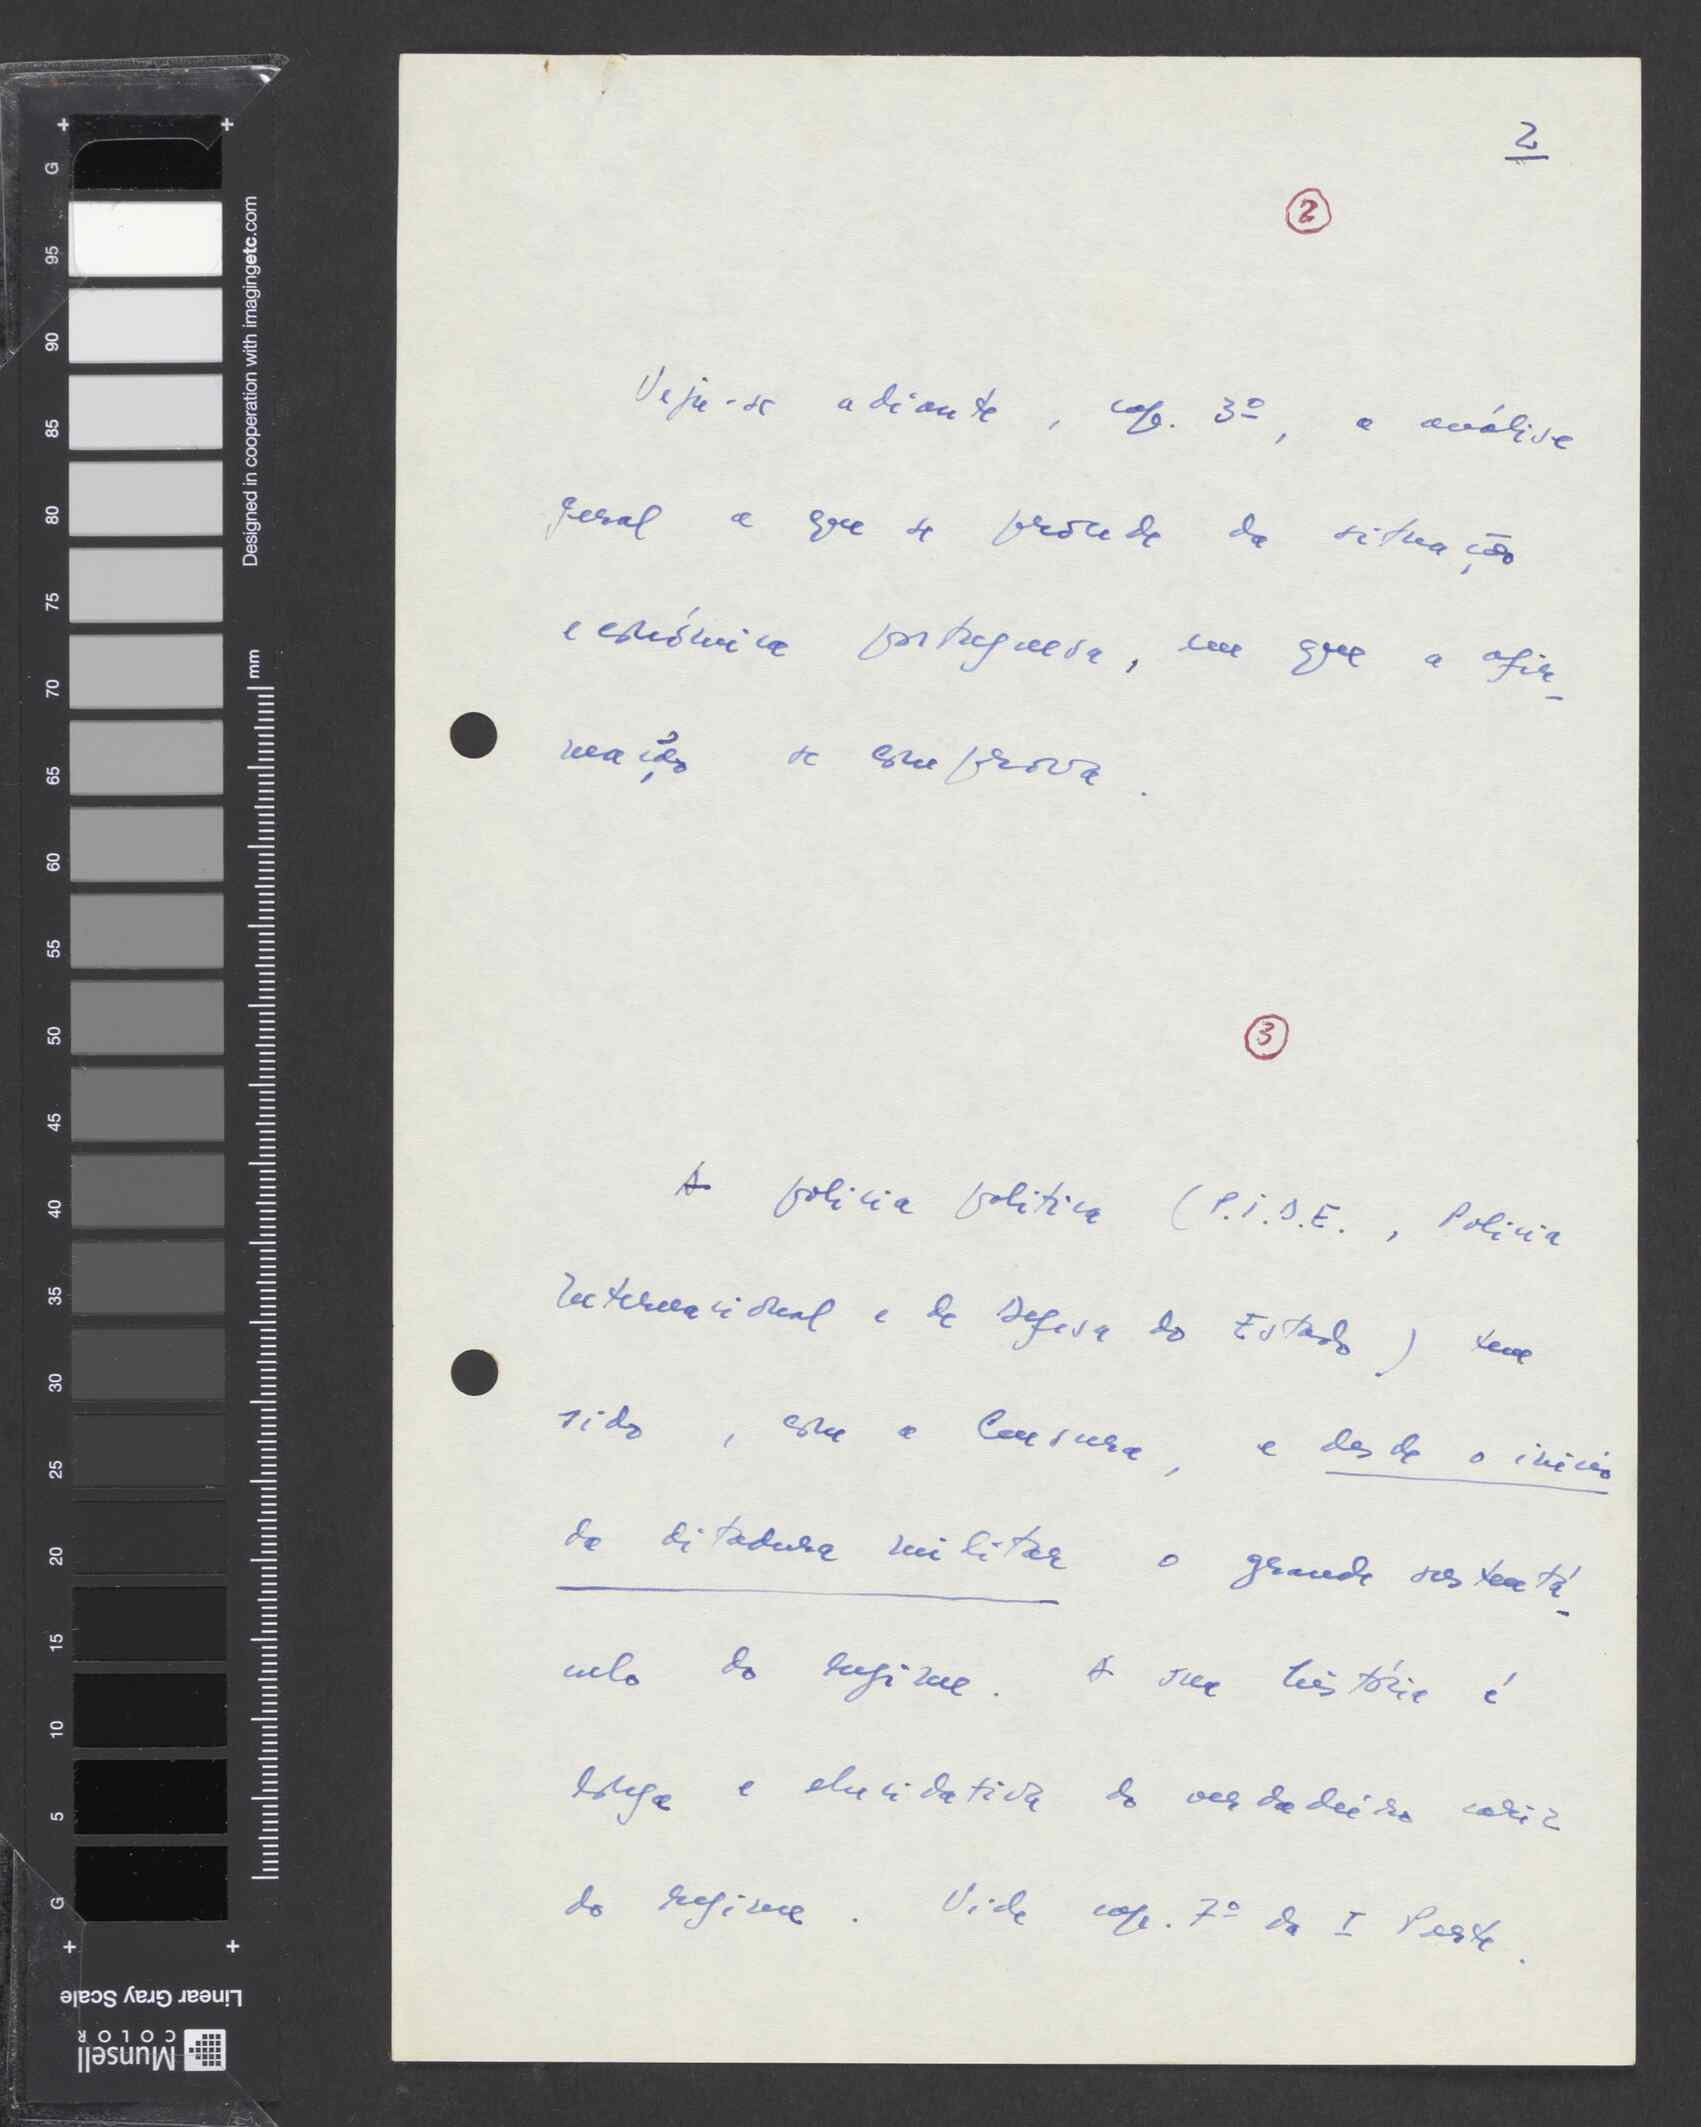 2
2
Veja-se adiante, cap. 3º, a análise
geral a que se procede da situação
económica portuguesa, em que a afir-
mação se comprova.
3
A policia politica (P.I.D.E., Policia
Internacional e de Defesa do Estado) tem
sido, com a Censura, e desde o inicio
da ditadura militar o grande sustentá-
culo do regime. A sua história é
longa e elucidativa do verdadeiro cariz
do regime. Vide cap. 7º da I Parte.
G
95
90
85
80
75
70
65
60
55
50
45
40
35
30
25
20
15
10
5
G
Designed in cooperation with imagingetc.com
mm
Linear Gray Scale
Munsell
COLOR